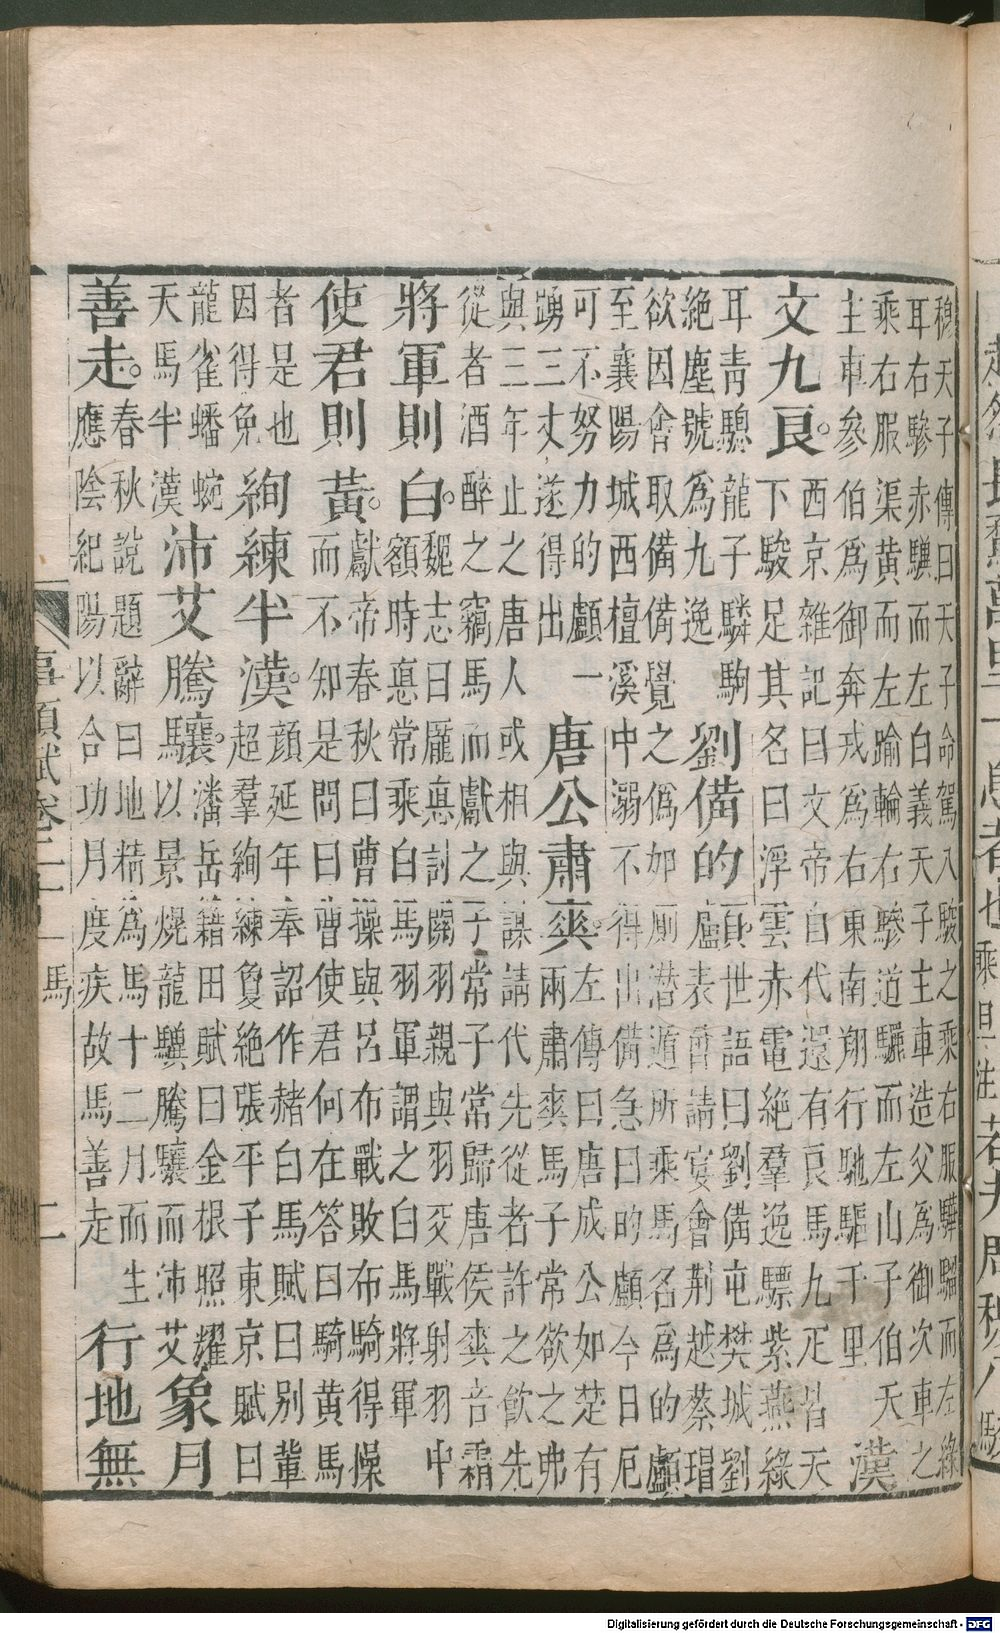 穆天子傳曰天子命駕八駿之乘右服驊騮而左綠
耳右驂赤驥而左白義天子主車造父為御次車之
乘右服渠黃而左踰輪右驂道驪而左山子伯天
主車參伯為御奔戎為右東南翔行馳驅千里
漢
文九良。
西京雜記曰文帝自代還有良馬九疋皆天
下駿足其名曰浮雲赤電絕羣逸驃紫燕綠
耳青驄龍子驎駒
絕塵號為九逸
劉備的顱
世語曰劉備屯樊城劉
表曾請宴會荊越蔡瑁
欲因會取備備覺之偽如廁潛遁所乘馬名為的顱
至襄陽城西檀溪中溺不得出備急曰的顱今日厄
可不努力的顱一
踴三丈遂得出
唐公肅爽。
左傳曰唐成公如楚有
兩肅爽馬子常欲之弗
與三年止之唐人或相與謀請代先從者許之飲先
從者酒醉之竊馬而獻之于常子常歸唐侯爽音霜
將軍則白。
魏志曰龐悳討關羽親與羽交戰射羽中
額時悳常乘白馬羽軍謂之白馬將軍
使君則黃。
獻帝春秋曰曹操與呂布戰敗布騎得操
而不知是問曰曹使君何在答曰騎黃馬
者是也
因得免
絢練半漢。
顏延年奉詔作赭白馬賦曰別輩
超羣絢練敻絕張平子東京賦曰
龍雀蟠蜿
天馬半漢
沛艾騰驤。
潘岳籍田賦曰金根照耀
以景燒龍驥騰驤而沛艾
象月
善走。
春秋說題辭曰地精為馬十二月而生
應陰紀陽以合功月度疾故馬善走
行地無
事類賦卷二十一 馬 二
Digitalisierung gefördert durch die Deutsche Forschungsgemeinschaft - DFG